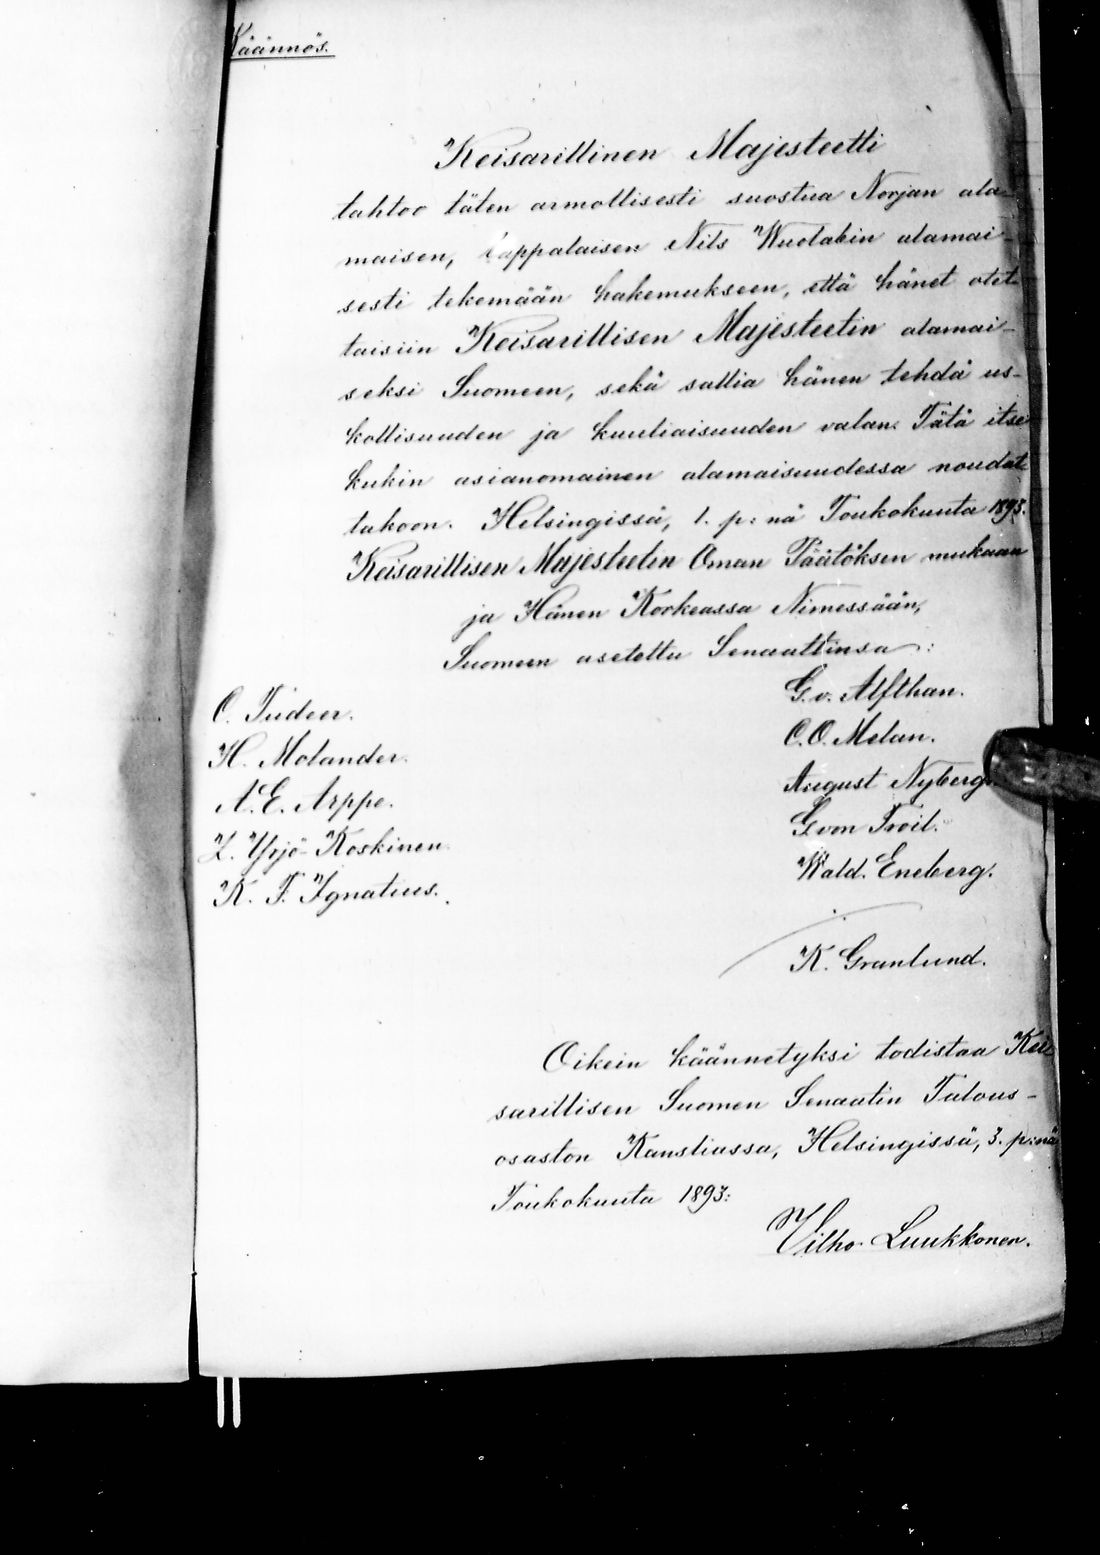 Käännös.
Keisarillinen Majesteetti
tahtoo täten armollisesti suostua Norjan ala-
maisen, lappalaisen Nils Wuolabin alamai-
sesti tekemään hakemukseen, että hänet otet-
taisiin Keisarillisen Majesteetin alamai-
seksi Suomeen, sekä sallia hänen tehdä us-
kollisuuden ja kuuliaisuuden valan. Tätä itse
kukin asianomainen alamaisuudessa noudat-
takoon. Helsingissä, 1. p:nä Toukokuuta 1893.
Keisarillisen Majesteetin Oman Päätöksen mukaan
ja Hänen Korkeassa Nimessään,
Suomeen asetettu Senaattinsa:
C. Tudeer.
H. Molander.
A. E. Arppe.
Z. Yrjö-Koskinen.
K. F. Ignatius.
G. v. Alfthan.
C. O. Melan.
August Nyberg.
G von Troil.
Wald. Eneberg.
K. Granlund.
Oikein käännetyksi todistaa Kei
sarillisen Suomen Senaatin Talous-
osaston Kansliassa, Helsingissä, 3. p:nä
Toukokuuta 1893:
Vilho Luukkonen.